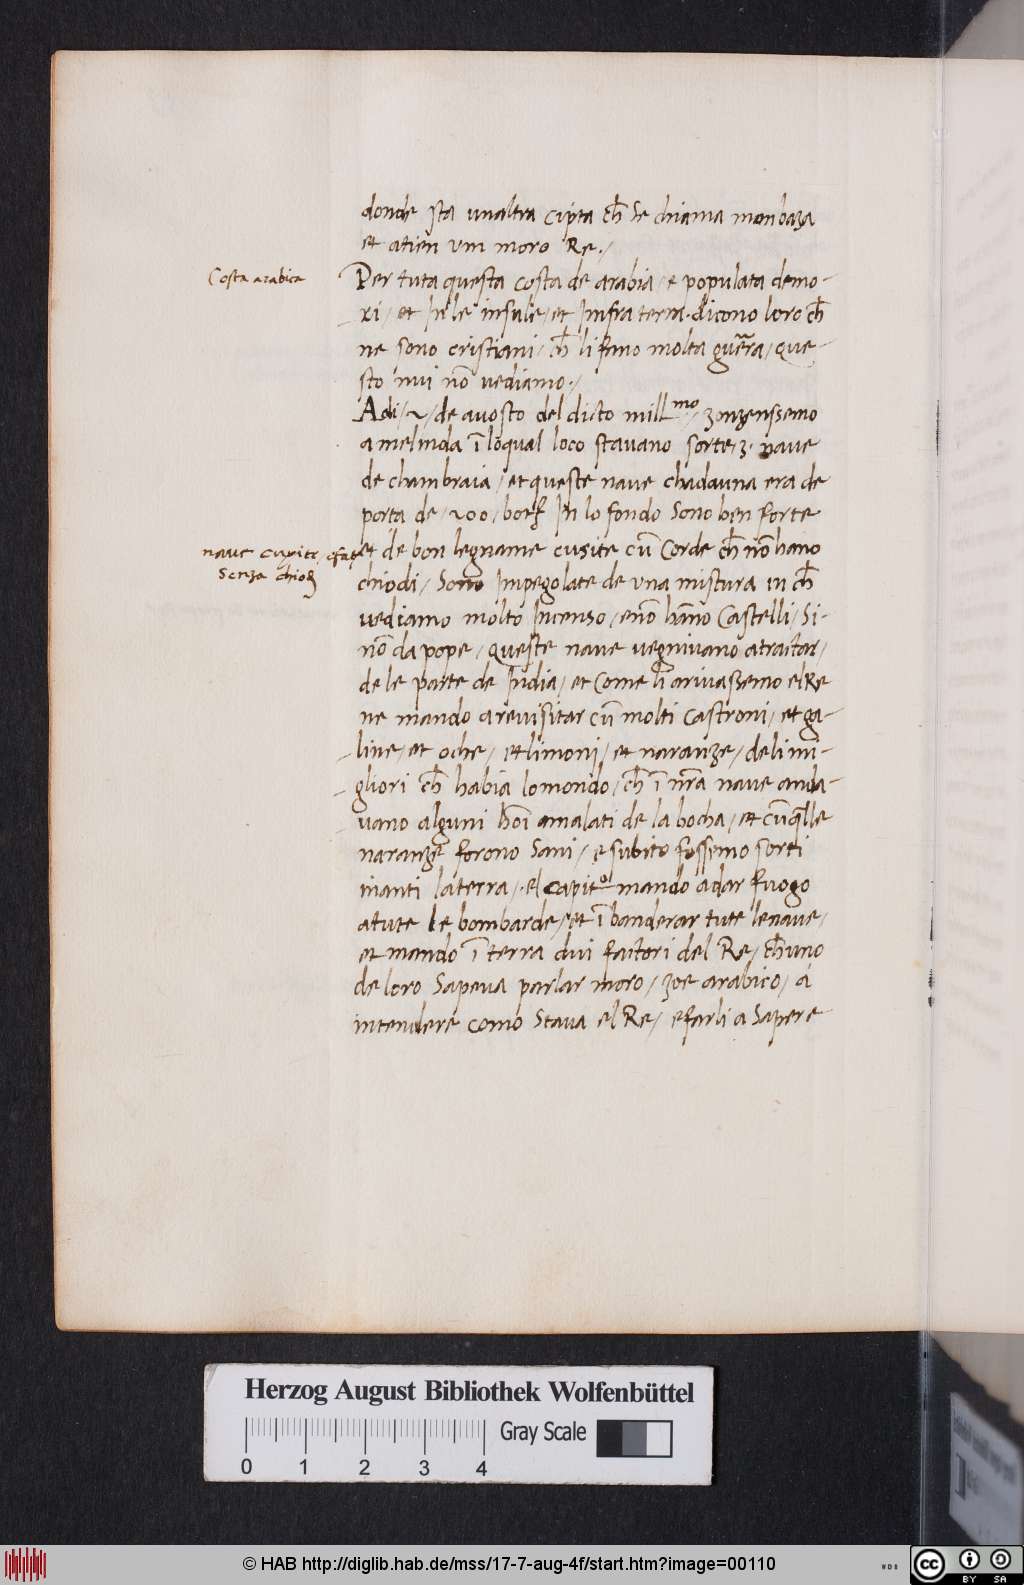 donde sta unaltra cipta ch̃ se chiama monbaza
et atien vm moro Re./
Costa arabica
Per tuta questa costa de arabia / e populata demo-
ri / et In le insule / et Infra terra. dicono loro ch̃
ne sono cristiani / ch̃ li fano molta guer̃a / que-
sto nui nõ vediamo./
Adi / 2 / de auosto del dicto mill.mo / zonzenssemo
a melinda ĩ loqual loco stauano sorte 3. naue
de chambraia / et queste naue chadauna era de
porta de / 200 / bote In lo fondo sono ben forte
naue cusite
senza chiodi
et de bon legname cusite cũ corde ch̃ nõ hano
chiodi / sono Impegolate de vna mistura in ch̃
vediamo molto Incenso / enõ hãno castelli / si-
nõ da pope / queste naue vegniuano atractar /
de le parte de India / et come li ariuassemo el Re
ne mando a reuisitar cũ molti castroni / et ga-
line / et oche / et limoni / et naranze / deli mi-
gliori ch̃ habia lo mondo / ch̃ ĩ nr̃a naue anda-
uano alguni hoĩ amalati de la bocha / et cũ q̃lle
naranze forono sani / e subito fossemo sorti
inanti la terra /. el capit.o mando adar fuogo
atute le bombarde / et ĩ banderar tute le naue /
et mando ĩ terra dui factori del Re / ch̃ uno
de loro sapeua parlar moro / zoe arabico / á
intendere como staua el Re / e farli a sapere
Herzog August Bibliothek Wolfenbüttel
Gray Scale
0 1 2 3 4
© HAB http://diglib.hab.de/mss/17-7-aug-4f/start.htm?image=00110
WDB
cc BY SA